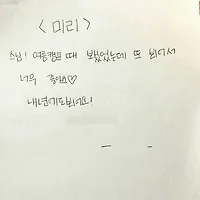 <미리>
스님! 여름캠프 때 봤었는데 또 뵈어서
너무 좋아요♡
내년에도뵈어요!